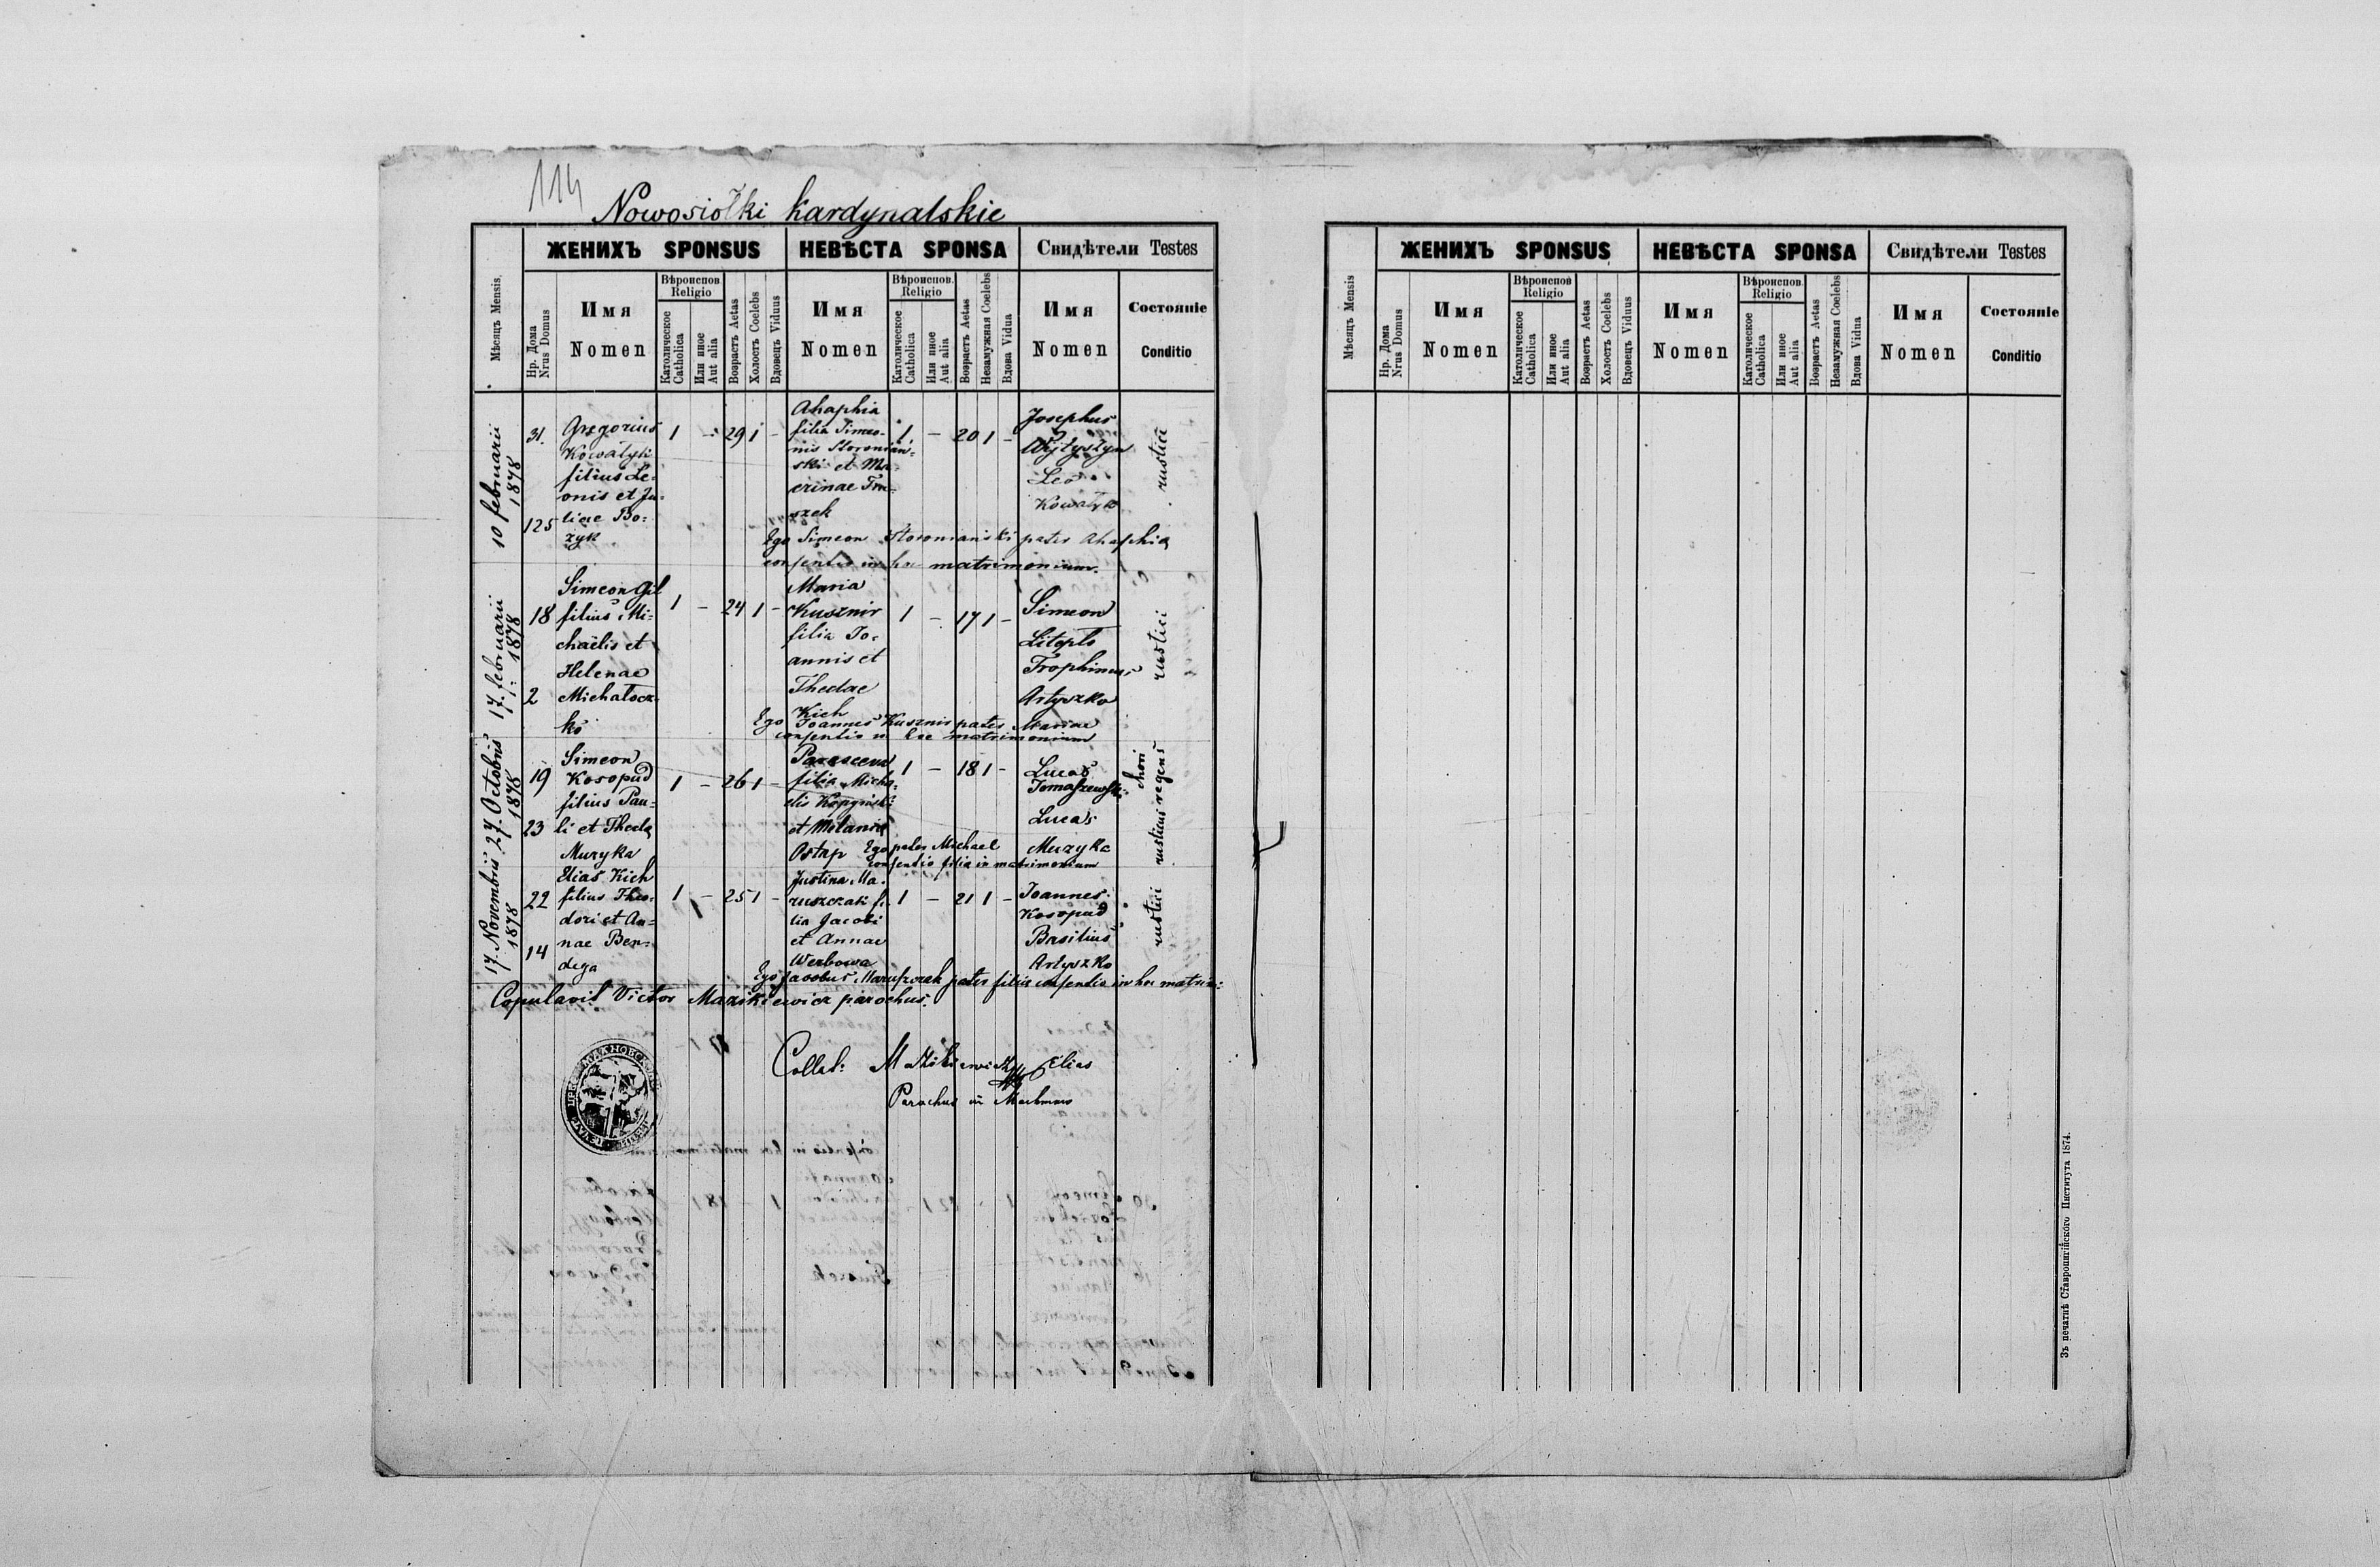 114
Nowosiołki kardynalskie
Мѣсяцъ Mensis.
ЖЕНИХЪ SPONSUS
НЕВѢСТА SPONSA
Свидѣтели Testes
Нр. Дома
Nrus Domus
Имя
Nomen
Вѣроиспов.
Religio
Католическое
Catholica
Или иное
Aut alia
Возрастъ Aetas
Холостъ Coelebs
Вдовецъ Viduus
Имя
Nomen
Вѣроиспов.
Religio
Католическое
Catholica
Или иное
Aut alia
Возрастъ Aetas
Незамужная Coelebs
Вдова Vidua
Имя
Nomen
Состояніе
Conditio
10 februarii
1878
31.
125
Gregorius
Kowalyk
filius Le-
onis et Ju-
liae Bo-
zyk
1 - 29 1 -
Ahaphia
filia Simeo-
nis Storonian-
ski et
szek
1 - 20 1 -
Josephus
Leo
Kowalyk
rustici
Ego Simeon Storonianski pater Ahaphia
consentio in hoc matrimonium.
17. februarii
1878
18
2
Simeon Gil
filius Mi-
chaëlis et
Helenae
Michalocz-
ko
1 - 24 1 -
Maria
Kusznir
filia Jo-
annis et
Theclae
Kich
1 - 17 1 -
Simeon
Liteplo
Trophimus
Artyszko
rustici
Ego Joannes Kusznir pater Mariae
consentio in hoc matrimonium
27. Octobris
1878
19
23
Simeon
Kosopud
filius Pau-
li et Thecla
Muzyka
1 - 26 1 -
Parascewa
filia Micha-
elis
et Melania
Ostap
1 - 18 1 -
Lucas
Tomaszewski
Lucas
Muzyka
chori
rusticus regens
Ego pater Michael
consentio filia in matrimonium
17. Novembris
1878
22
14
Elias Kich
filius Theo-
dori et An-
nae Ben-
dega
1 - 25 1 -
Justina Ma-
ruszczak fi-
lia Jacobi
et Annae
Werbowa
1 - 21 1 -
Joannes
Kosopud
Basilius
Artyszko
rustici
Ego Jacobus Maruszczak pater filiae consentio in hoc matrim:
Copulavit Victor Mazikiewicz parochus.
Collat: Mazikiewicz Elias
Parochus in
Мѣсяцъ Mensis
ЖЕНИХЪ SPONSUS
НЕВѢСТА SPONSA
Свидѣтели Testes
Нр. Дома
Nrus Domus
Имя
Nomen
Вѣроиспов
Religio
Католическое
Catholica
Или иное
Aut alia
Возрастъ Aetas
Холостъ Coelebs
Вдовецъ Viduus
Имя
Nomen
Вѣроиспов.
Religio
Католическое
Catholica
Или иное
Aut alia
Возрастъ Aetas
Незамужная Coelebs
Вдова Vidua
Имя
Nomen
Состояніе
Conditio
Зъ печатнѣ Ставропигійского Института 1874.